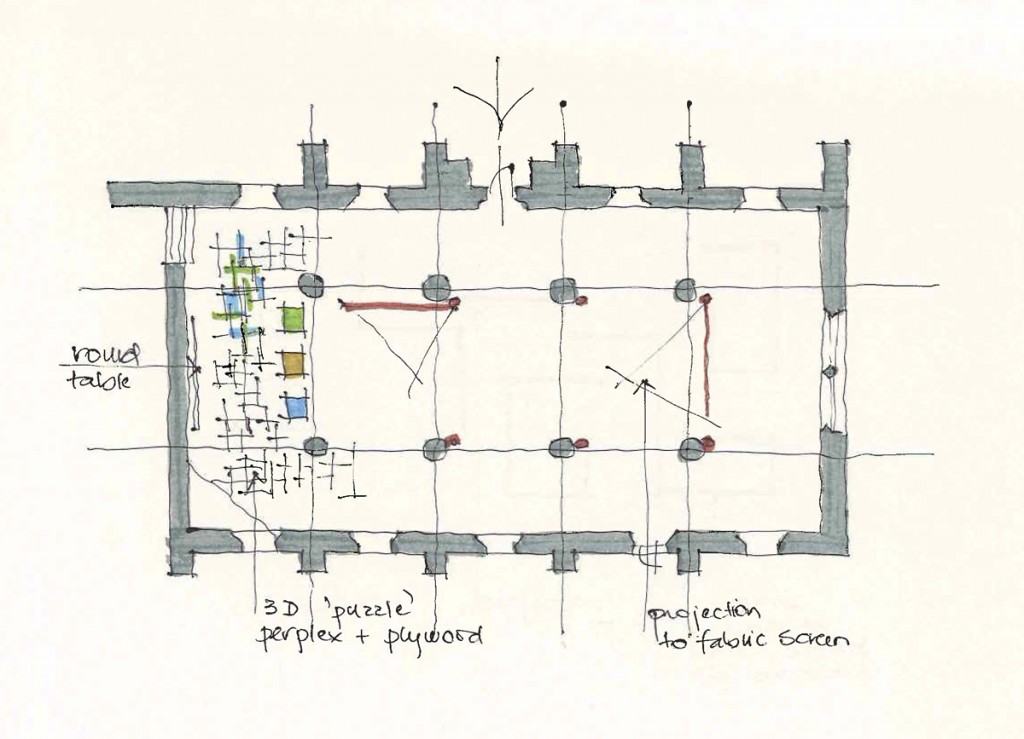 round
table
3D 'puzzle'
perplex + plywood
projection
to fabric screen